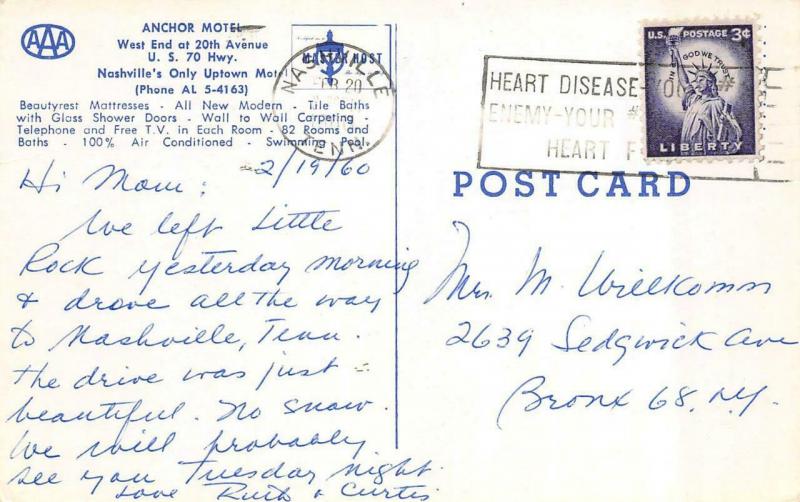 AAA
ANCHOR MOTEL
West End at 20th Avenue
U. S. 70 Hwy.
Nashville's Only Uptown Motel
(Phone AL 5-4163)
Beautyrest Mattresses - All New Modern - Tile Baths
with Glass Shower Doors - Wall to Wall Carpeting -
Telephone and Free T.V. in Each Room - 82 Rooms and
Baths - 100% Air Conditioned - Swimming Pool.
MASTER HOST
NASHVILLE
FEB 20
TENN.
HEART DISEASE
ENEMY-YOUR #
HEART
U.S. POSTAGE 3¢
IN GOD WE TRUST
LIBERTY
POST CARD
2/19/60
Hi Mom:
We left Little
Rock yesterday morning
& drove all the way
to Nashville, Tenn.
The drive was just
beautiful. No snow.
We will probably
see you Tuesday night.
Love Ruth & Curtis
Mrs. M. Willkomm
2639 Sedgwick Ave
Bronx 68, N.Y.